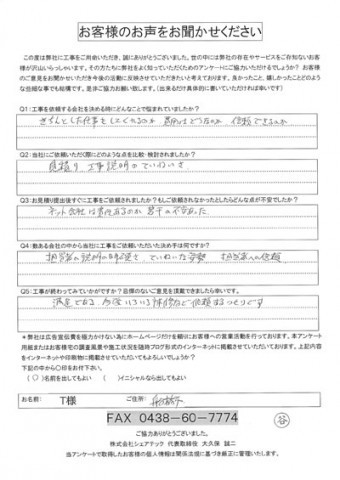 お客様のお声をお聞かせください
この度は弊社に工事をご用命いただき、誠にありがとうございます。世の中には弊社の存在やサービスをご存知ないお客
様が沢山いらっしゃいます。その方たちに弊社をよく知っていただくためのアンケートにご協力いただけるでしょうか？ お客様
のご意見をお聞かせいただき今後の活動に反映させていただきたいと考えております。良かったこと、嬉しかったことどのよう
な些細な事でも結構です。是非ご協力お願い致します。(出来るだけ具体的に書いていただければ幸いです)
Q1：工事を依頼する会社を決める時にどんなことで悩まれていましたか？
きちんとした仕事をしてくれるのか 費用はどうなのか 信頼できるのか
Q2：当社にご依頼いただく際にどのような点を比較・検討されましたか？
見積り、工事説明のていねいさ
Q3：お見積り提出後すぐに工事をご依頼されましたか？もしご依頼されなかったとしたらどんな点が不安でしたか？
ネット会社は責任あるのか 若干の不安あった
Q4：数ある会社の中から当社に工事をご依頼いただいた決め手は何ですか？
担当者の説明の ていねいな姿勢 担当者への信頼
Q5：工事が終わってみていかがですか？目標のないご意見を頂戴できましたら幸いです。
満足である 今後いろいろ 依頼するつもりです
＊弊社は広告宣伝費を極力かけない為にホームページだけを頼りにお客様への営業活動を行っております。本アンケート
用紙またはお客様宅の調査風景や施工状況を随時ブログ形式のインターネットに掲載させていただいております。上記内容
をインターネットや印刷物に掲載させていただいてもよろしいでしょうか？
下記の中から○印をお付下さい。
(○)名前を出してもよい ( )イニシャルなら出してもよい
お名前： T様 ご住所： 船橋市
FAX 0438-60-7774
谷
ご協力ありがとうございました。
株式会社シェアテック 代表取締役 大久保 誠二
当アンケートで取得したお客様の個人情報は関係法規に基づき厳正に管理いたします。